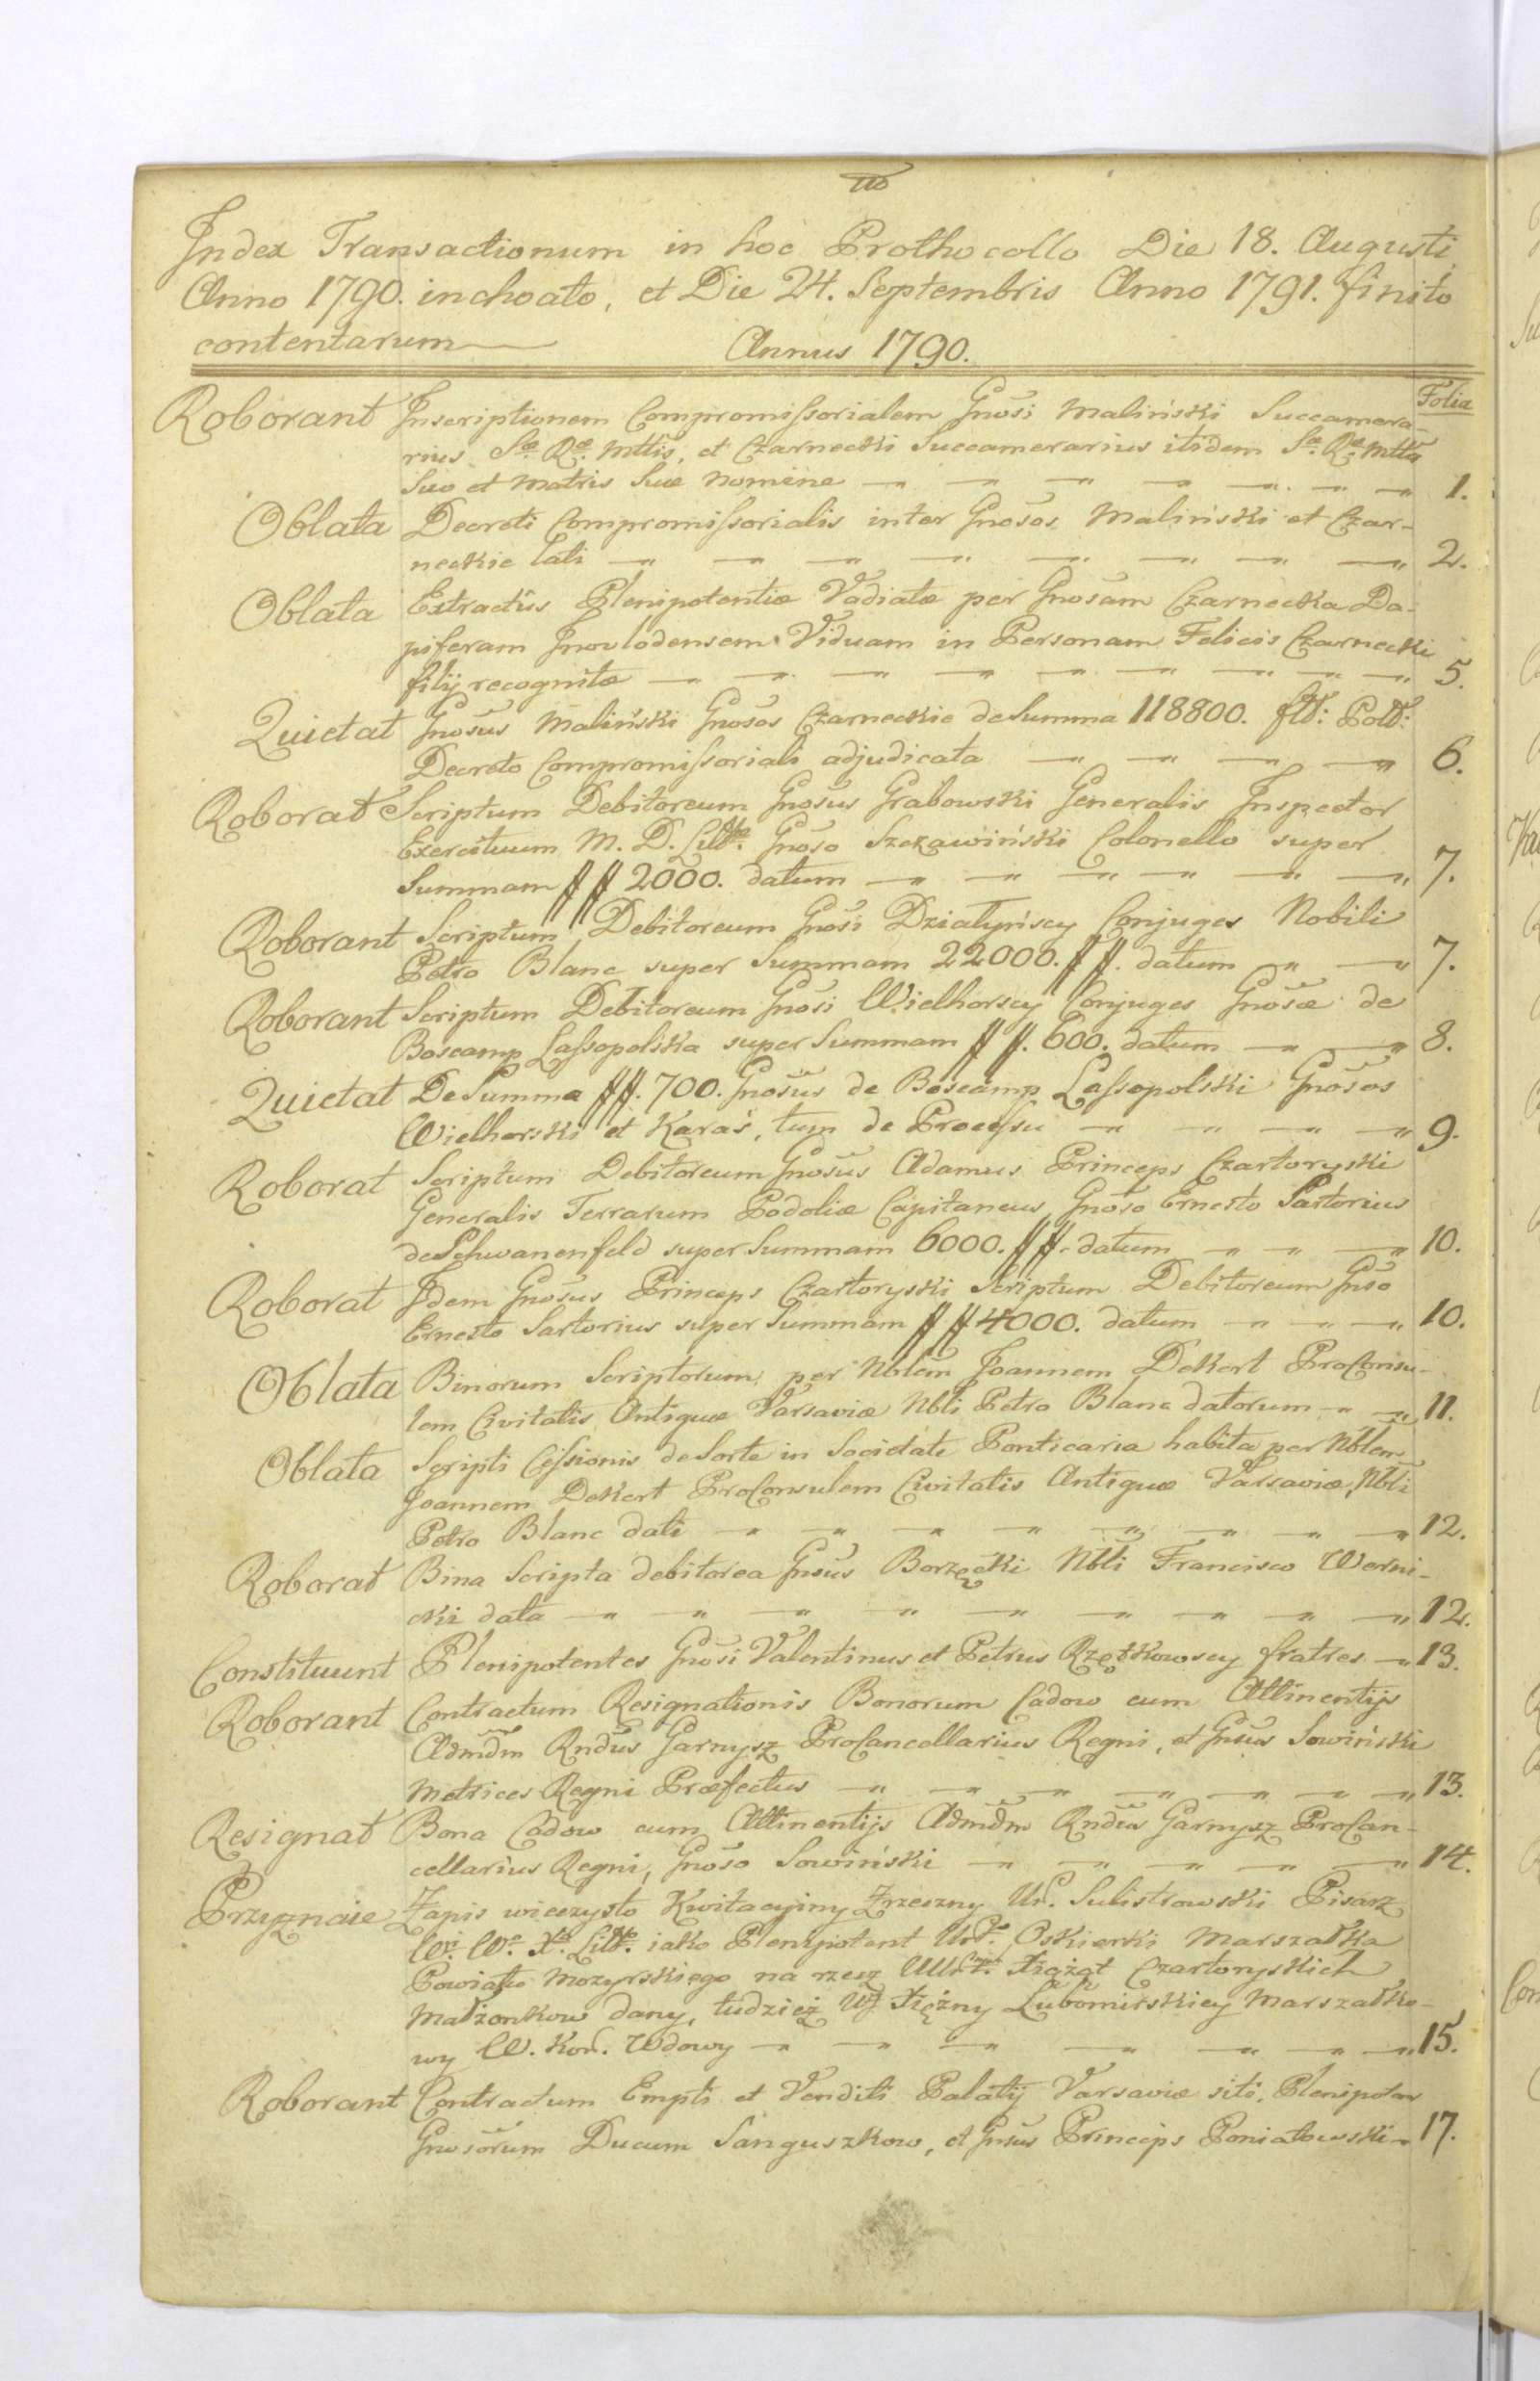 Index Transactionum in hoc Prothocollo Die 18. Augusti
Anno 1790. inchoato, et Die 24. Septembris Anno 1791. finito
contentarum
Annus 1790.
Folia
Roborant Inscriptionem Compromissorialem Gnosi Maliński Succamera-
rius Sæ. Ræ. Mttis, et Czarnecki Succamerarius itidem Sæ. Ræ. Mttis
Suo et Matris Suæ Nomine 1.
Oblata Decreti Compromissorialis inter Gnosos Maliński et Czar-
neckie Lati 2.
Oblata Extractûs Plenipotentiæ Vadiatæ per Gnosam Czarnecka Da-
piferam Inovlodensem Viduam in Personam Felicis Czarnecki
filij recognitæ 5.
Quietat Gnosus Maliński Gnosos Czarneckie de Summa 118800. fld: Poll:
Decreto Compromissoriali adjudicata 6.
Roborat Scriptum Debitoreum Gnosus Grabowski Generalis Inspector
Exercituum M. D. Litt. Gnoso Szczawiński Colonello super
Summam ## 2000. datum 7.
Roborant Scriptum Debitoreum Gnosi Działyńscy Conjuges Nobili
Petro Blanc super Summam 22000. ##. datum 7.
Roborant Scriptum Debitoreum Gnosi Wielhorscy Conjuges Gnosæ de
Boscamp Lassopolska super Summam ##. 600. datum 8.
Quietat De Summa ##. 700. Gnosus de Boscamp Lassopolski Gnosos
Wielhorski et Karaś, tum de Processu 9.
Roborat Scriptum Debitoreum Gnosus Adamus Princeps Czartoryski
Generalis Terrarum Podoliæ Capitaneus Gnoso Ernesto Sartorius
de Schwanenfeld super Summam 6000. ##. datum 10.
Roborat Idem Gnosus Princeps Czartoryski Scriptum Debitoreum Gnso
Ernesto Sartorius super Summam ## 4000. datum 10.
Oblata Binorum Scriptorum per Nblem Joannem Dekert ProConsu-
lem Civitatis Antiquæ Varsaviæ Nbli Petro Blanc datorum 11.
Oblata Scripti Cessionis de Sorte in Societate Ponticaria habita per Nblem
Joannem Dekert ProConsulem Civitatis Antiquæ Varsaviæ, Nbli
Petro Blanc dati 12.
Roborat Bina Scripta debitorea Gnsus Borzęcki Nbli Francisco Werni-
cki data 12.
Constituunt Plenipotentes Gnosi Valentinus et Petrus Rzętkowscy fratres 13.
Roborant Contractum Resignationis Bonorum Cadow cum Attinentijs
Admdm Rndus Garnysz ProCancellarius Regni, et Gnsus Sowiński
Metrices Regni Præfectus 13.
Resignat Bona Cadow cum Attinentijs Admdm Rndus Garnysz ProCan-
cellarius Regni, Gnoso Sowiński 14.
Przyznaie Zapis wieczysto Kwitacyiny Zrzeczny Ur. Sulistrowski Pisarz
W. X. Litt. iako Plenipotent Oskierki Marszałka
Powiatu Mozyrskiego na rzecz Xiążąt Czartoryskich
Małżonkow dany, tudzież Xiężny Lubomirskiey Marszałko-
wy W. Kor. Wdowy 15.
Roborant Contractum Empti et Venditi Palatij Varsaviæ siti, Plenipotens
Gnosorum Ducum Sanguszkow, et Gnsus Princeps Poniatowski 17.